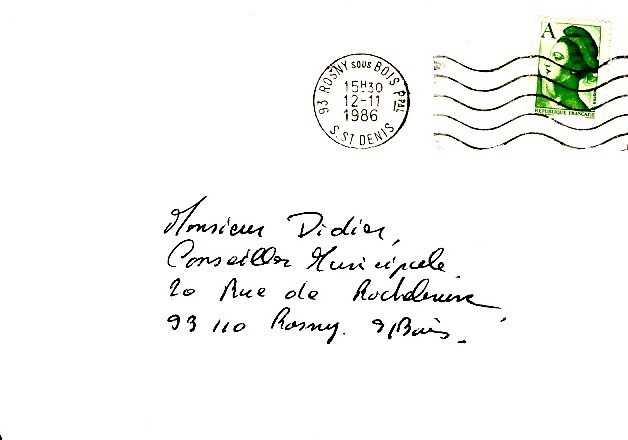 A
REPUBLIQUE FRANCAISE
93 ROSNY SOUS BOIS PPAL
15H30
12-11
1986
S. ST DENIS
Monsieur Didier,
Conseiller Municipale.
20 Rue de
93 110 Rosny. s/Bois.